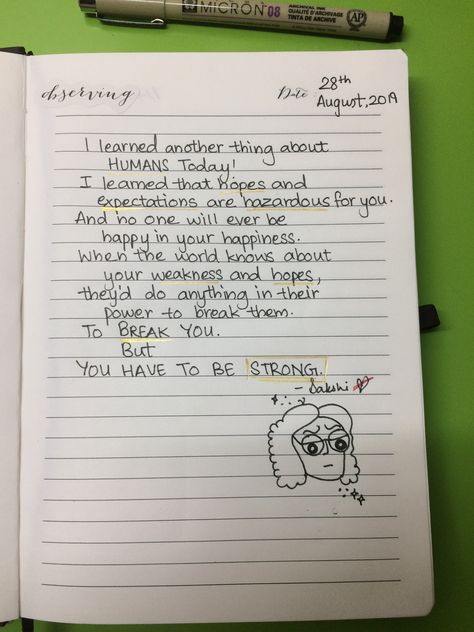 MICRON 08
ARCHIVAL INK
QUALITÉ D'ARCHIVAGE
TINTA DE ARCHIVE
AP
observing
Date: 28th August, 2019
I learned another thing about
HUMANS Today!
I learned that hopes and
expectations are hazardous for you.
And no one will ever be
happy in your happiness.
When the world knows about
your weakness and hopes,
they'd do anything in their
power to break them.
To BREAK YOU.
But
YOU HAVE TO BE STRONG.
- Sakshi